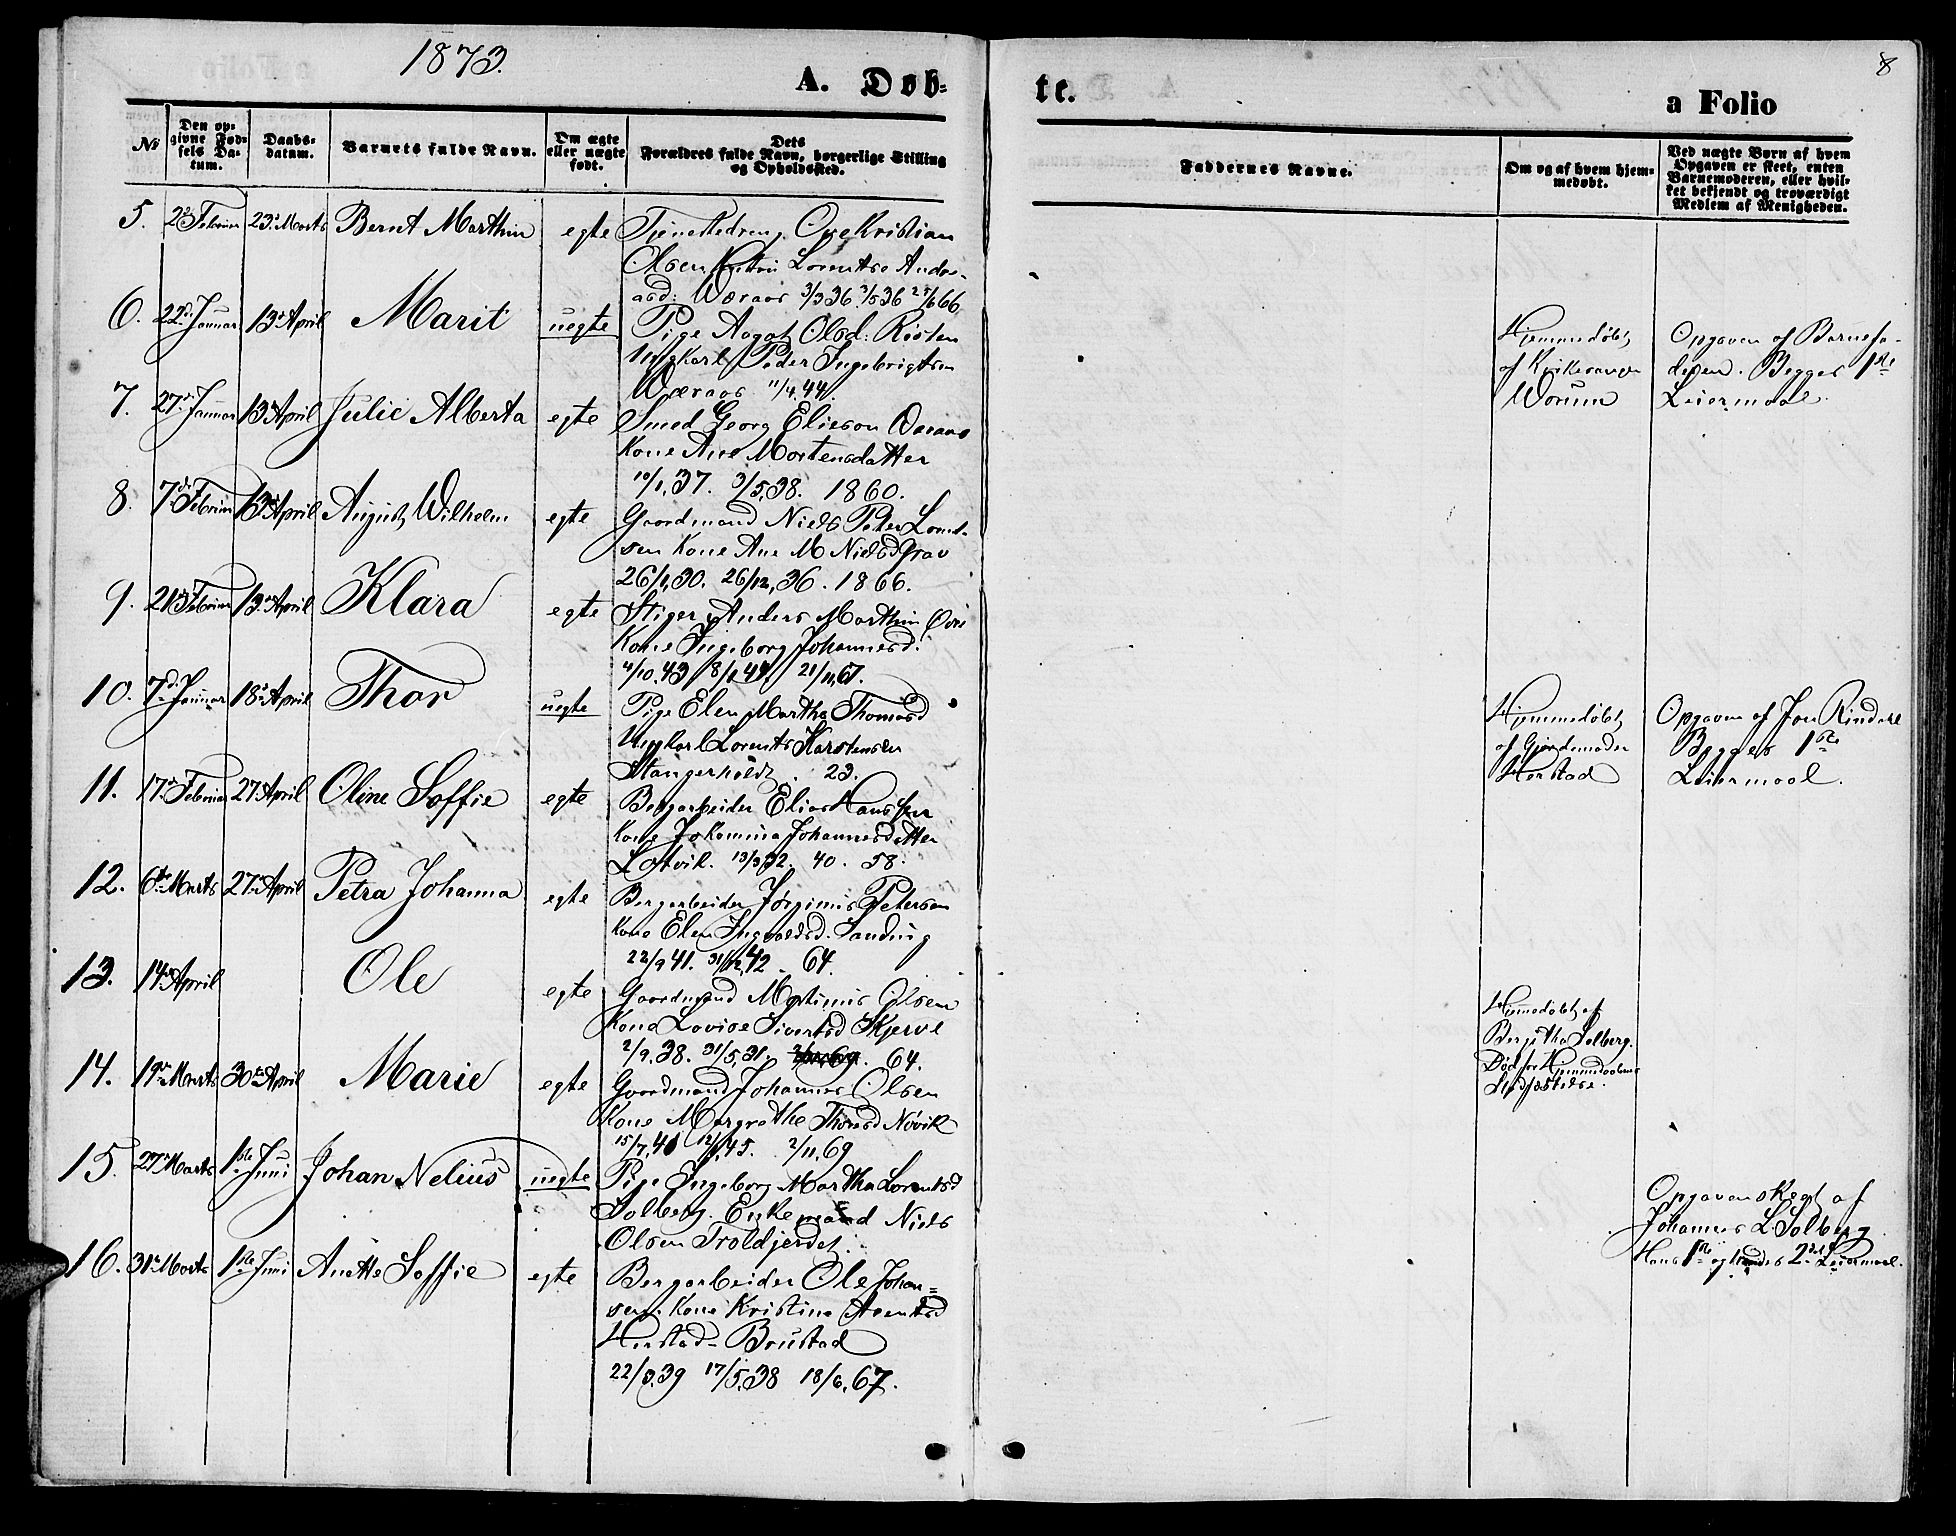 1873.
A. Døb-
te.
a Folio
8
No
Den op-
givne Fød-
sels Da-
tum.
Daabs-
datum.
Barnets fulde Navn.
Om ægte
eller uægte
født.
Dets
Forældres fulde Navn, borgerlige Stilling
og Opholdssted.
Faddernes Navne.
Om og af hvem hjem-
medøbt.
Ved uægte Børn af hvem
Opgaven er skeet, enten
Barnemoderen, eller hvil-
ket bekjendt og troværdigt
Medlem af Menigheden.
5. Februar 23. Marts Bernt Marthin egte Tjenestedreng Ove Kristian
Olsen Lorentse Andre-
asd: Væraas 3/3 36 66
6. 22d. Januar 13de April Marit uegte Pige Aagot Olsd: Risten
Ungkarl Peder Ingebrigtsen
Væraas 11/4, 44.
Hjemmedøbt
af Kirkesanger
Worum
Opgaven af Barnefa-
deren. Begges 1ste
Leiermaal.
7. 27de Januar 13de April Julie Alberta egte Smed Georg Elieson
Kone Ane Mortensdatter
10/1, 37. 3/5, 38. 1860.
8. 7de Februar 13de April August Wilhelm egte Gaardmand Niels Peter
sen Kone Ane M Nielsd Grav
26/1, 30. 26/12, 36. 1866.
9. 21de Februar 13de April Klara egte Stiger Anders Marthin
Kone Ingeborg Johannesd.
4/10. 43 21/11, 67.
10. 7de Januar 18de April Thor uegte Pige Elen Martha Thomasd
Ungkarl Lorents Karstensen
Stangerholdt. 23.
Hjemmedøbt
af Gjordemoder
Herstad
Opgaven af Jon Rindsel
Begges 1ste
Leiermaal.
11. 17de Februar 27de April Oline Soffie egte Bergarbeider Elias Hanssen
Kone Johannesdatter
Løtvik. 13/3 32. 40. 58.
12. 6te Marts 27de April Petra Johanna egte Bergarbeider Jørginus Petersen
Kone Elen Ingvaldsd. Sanding
22/9 41. 31/12, 42. 64.
13. 14de April Ole egte Gaardmand Martinus Olsen
Kone Lovise Sivertsd Skjerve
2/9. 38. 31/5, 31. 64.
Hjemmedøbt af
Solberg.
Død før Hjemmedaabens
Stadfæstelse.
14. 19de Marts 30te April Marie egte Gaardmand Johannes Olsen
Kone Margrethe Thoresd Nøvik
15/7, 40 45. 2/11, 69
15. 27de Marts 1ste Juni Johan Nelius uegte Pige Ingeborg Martha Lorentsd
Solberg. Enkemand Niels
Olsen Troldjerdet.
Opgaven skegt af
Johannes L Solberg
Hans 1ste og hendes 2det Leiermaal.
16. 31te Marts 1ste Juni Anette Soffie egte Bergarbeider Ole Johan-
sen. Kone Kristine Arentsd
Herstad - Brustad
22/8, 39 17/5, 38 18/6, 67.